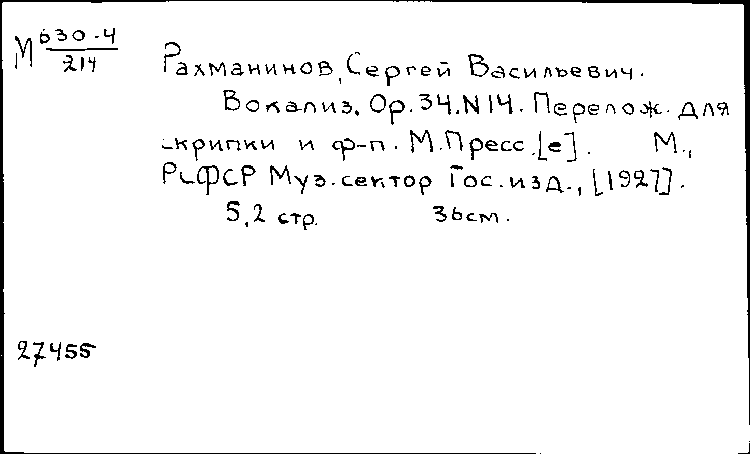 М 630-4
214
Рахманинов, Сергей Васильевич.
Вокализ. Ор. 34. N14. Перелож. для
скрипки и ф-п. М. Пресс.[е]. М.,
РсФСР Муз. сектор Гос. изд., [1927].
5,2 стр. 36см.
27455